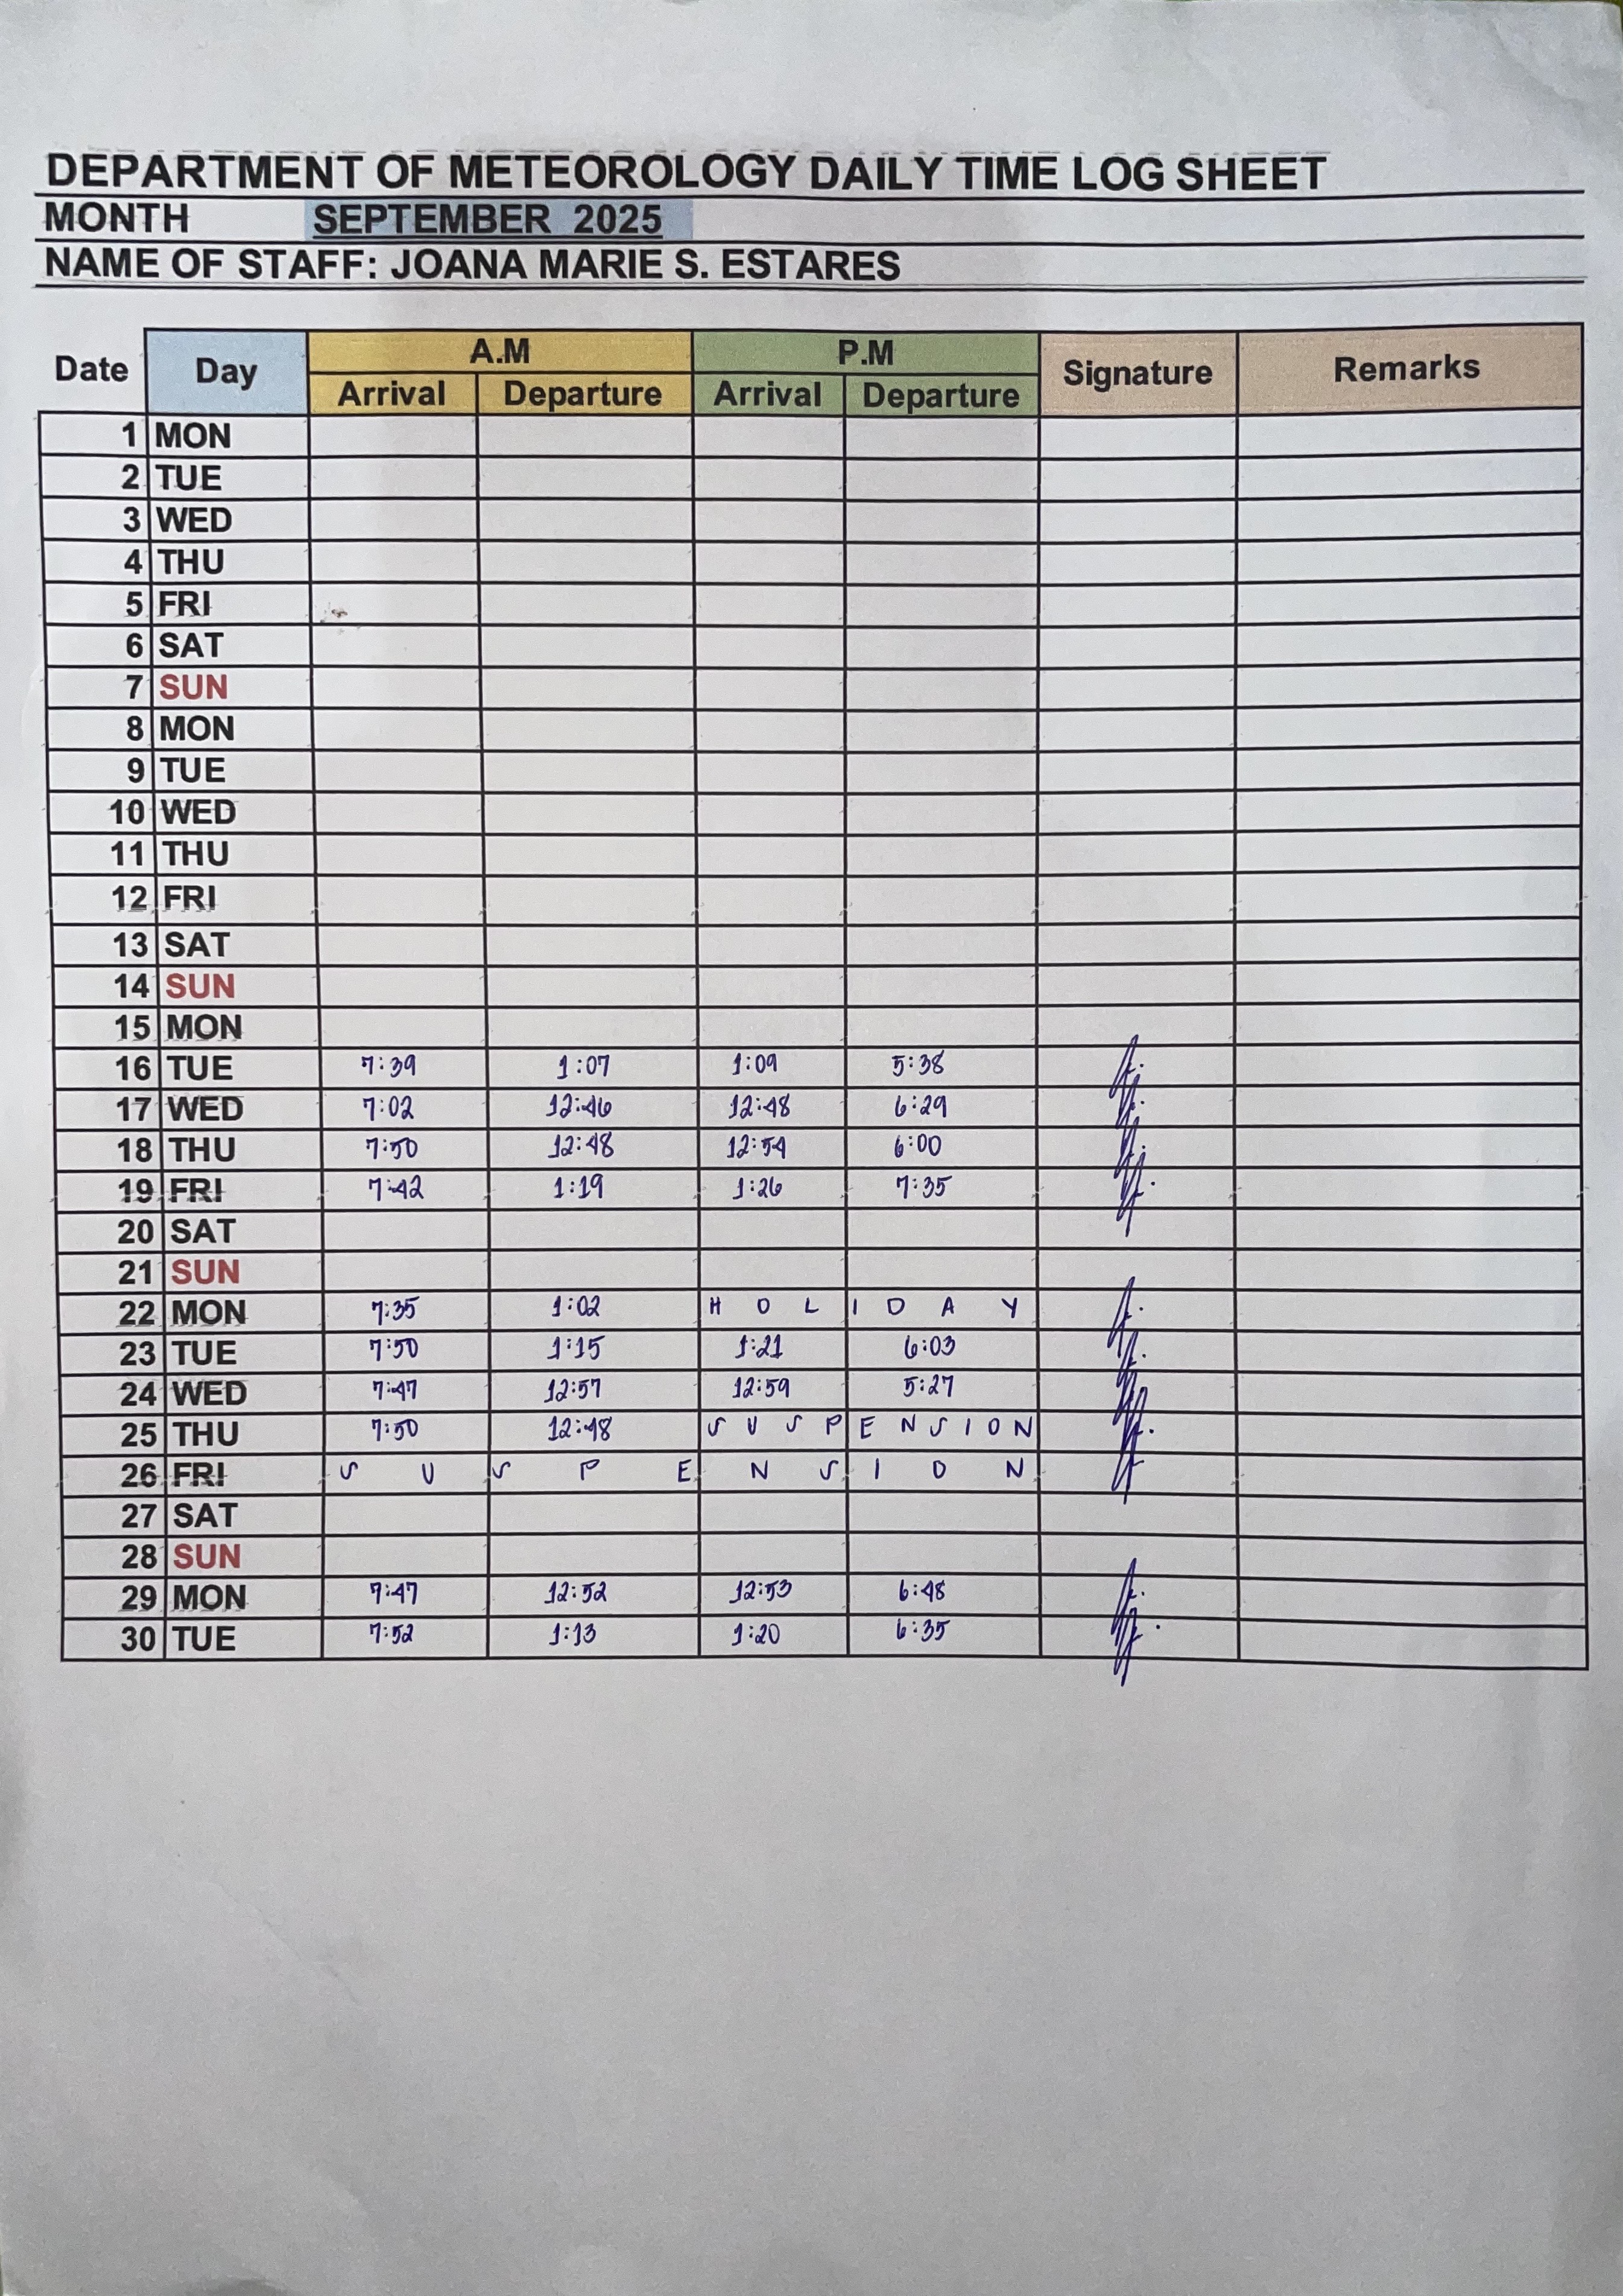 DEPARTMENT OF METEOROLOGY DAILY TIME LOG SHEET
MONTH SEPTEMBER 2025
NAME OF STAFF: JOANA MARIE S. ESTARES
Date Day A.M P.M Signature Remarks
Arrival Departure Arrival Departure
1 MON
2 TUE
3 WED
4 THU
5 FRI
6 SAT
7 SUN
8 MON
9 TUE
10 WED
11 THU
12 FRI
13 SAT
14 SUN
15 MON
16 TUE 7:39 1:07 1:09 5:38
17 WED 7:02 12:46 12:48 6:29
18 THU 7:50 12:48 12:54 6:00
19 FRI 7:42 1:19 1:26 7:35
20 SAT
21 SUN
22 MON 7:35 1:02 HOLIDAY
23 TUE 7:50 1:15 1:21 6:03
24 WED 7:47 12:57 12:59 5:27
25 THU 7:50 12:48 SUSPENSION
26 FRI SUSPENSION
27 SAT
28 SUN
29 MON 7:47 12:52 12:53 6:48
30 TUE 7:52 1:13 1:20 6:35